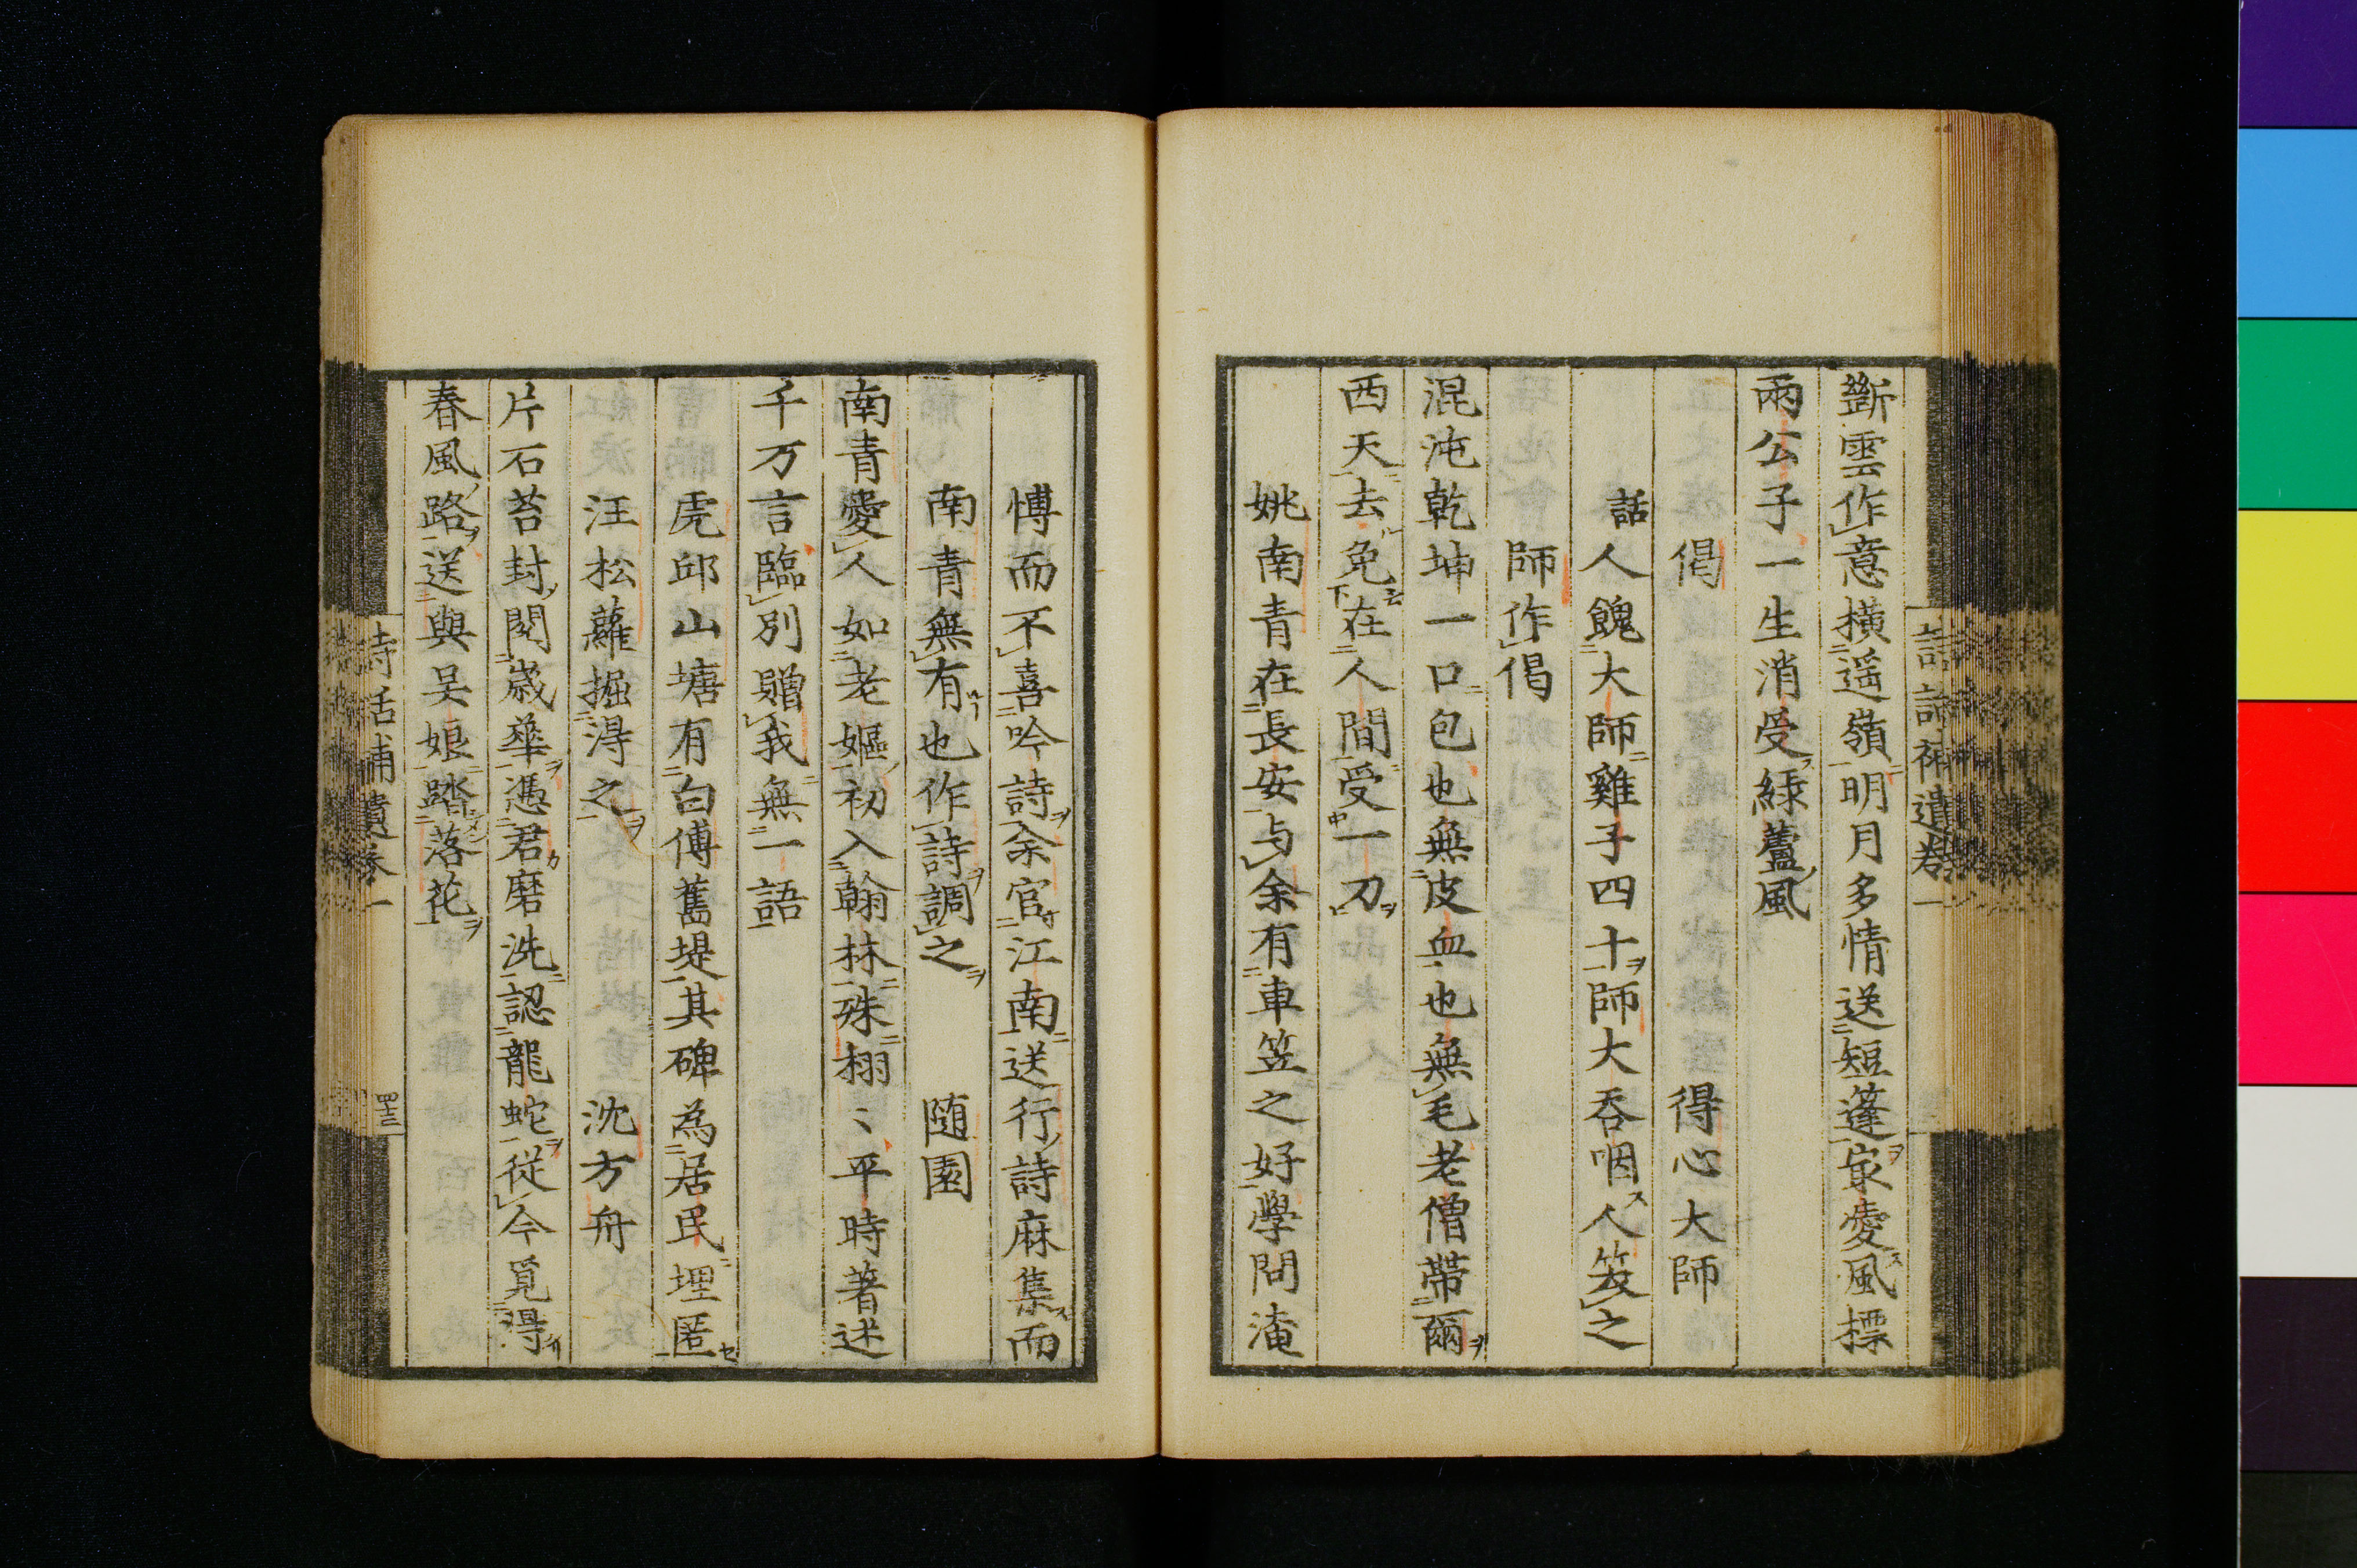 斷雲作意橫遥嶺明月多情送短蓬家愛風標
兩公子一生消受緑蘆風
偈　得心大師
話人餽大師雞子四十師大吞咽人笑之
師作偈
混沌乾坤一口包也無皮血也無毛老僧帶爾
西天去免在人間受一刀
姚南青在長安与余有車笠之好學問淹
博而不喜吟詩余官江南送行詩麻集而
南青無有也作詩調之　随園
南青愛人如老嫗初入翰林殊栩〻平時著述
千万言臨別贈我無一語
虎邱山塘有白傅舊堤其碑為居民埋匿
汪松蘿掘得之　沈方舟
片石苔封閱歳華憑君磨洗認龍蛇從今覓得
春風路送與吴娘踏落花
詩話補遺卷一
四十三